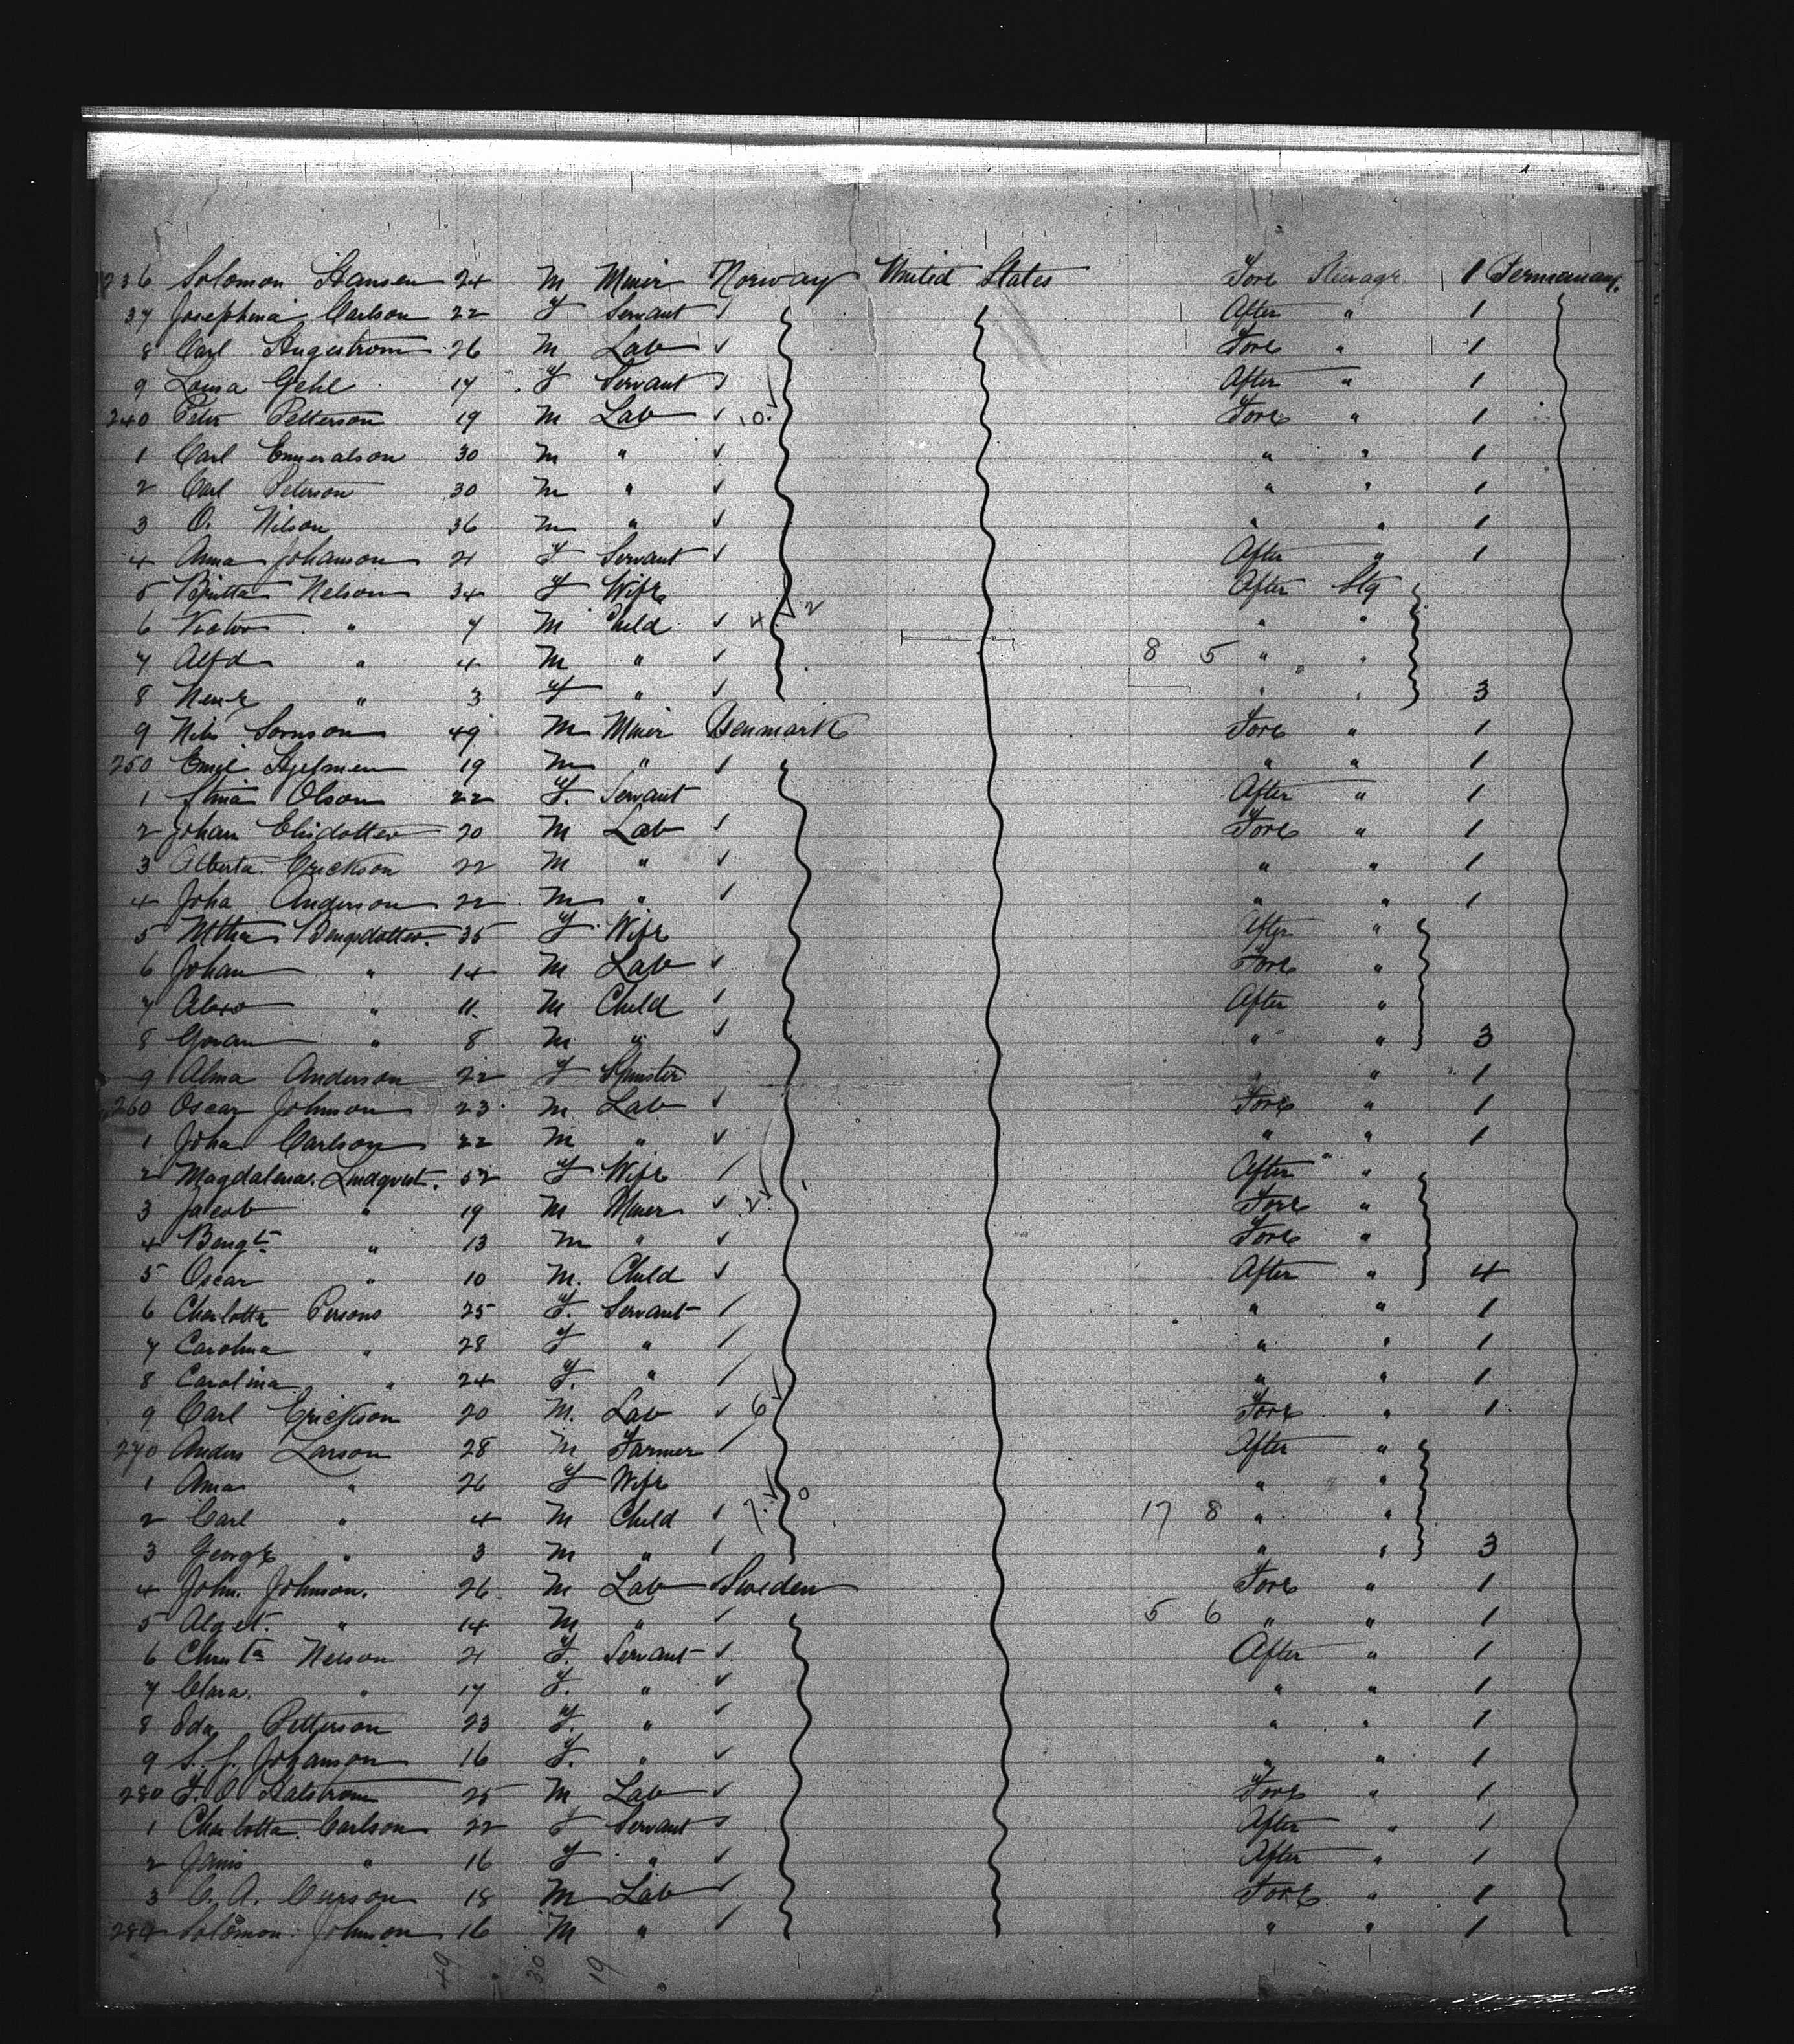 236 Solomon Hansen 24 M Miner Norway United States Fore Steerage 1 Permanary.
37 Josephina Carlson 22 F Servant ✓ After " 1
8 Carl Hugestrom 26 M Lab ✓ Fore " 1
9 Louisa Gehl 17 F Servant ✓ After " 1
240 Peter Petterson 19 M Lab ✓ 10 ✓ Fore " 1
1 Carl Emeralson 30 M " ✓ " " 1
2 Carl Peterson 30 M " ✓ " " 1
3 O. Nilson 36 M " ✓ " " 1
4 Anna Johanson 21 F Servant ✓ After " 1
5 Britta Nelson 34 F Wife After Stg
6 Victor " 7 M Child ✓ 4 ✓ 2 " "
7 Alfd " 4 M " ✓ 8 5 " "
8 " 3 F " ✓ " " 3
9 Nils Sornson 49 M Miner Denmark Fore " 1
250 Emil Hjelmen 19 M " ✓ " " 1
1 Stina Olson 22 F. Servant After " 1
2 Johan Elisdotter 20 M Lab ✓ Fore " 1
3 Alberta Erickson 22 M " ✓ " " 1
4 Joha Anderson 22 M " ✓ " " 1
5 Bengdotter. 35 F Wife After "
6 Johan " 14 M Lab ✓ Fore "
7 " 11. M Child ✓ After "
8 Goran " 8 M " ✓ " " 3
9 Alma Anderson 22 F Spinster " " 1
260 Oscar Johnson 23 M Lab ✓ Fore " 1
1 Joha Carlson 22 M " ✓ " " 1
2 Magdalena Lindqvist. 52 F Wife / After "
3 Jacob " 19 M Miner ✓ 2 ✓ Fore "
4 Bengt " 13 M " ✓ Fore "
5 Oscar " 10 M. Child ✓ After " 4
6 Charlotta Persons 25 F. Servant / " " 1
7 Carolina " 28 F " / " " 1
8 Carolina " 24 F. " / " " 1
9 Carl Erickson 20 M. Lab ✓ 6 ✓ Fore " 1
270 Anders Larson 28 M Farmer / After "
1 Anna " 26 F Wife " "
2 Carl " 4 M Child ✓ 7 ✓ 0 17 8 " "
3 George " 3 M " / " " 3
4 John. Johnson. 26 M Lab ✓ Sweden Fore " 1
5 Alget. " 14 M " ✓ 5 6 " " 1
6 Christa Nelson 21 F. Servant ✓ After " 1
7 Clara. " 17 F. " ✓ " " 1
8 Ida Petterson 23 F. " ✓ " " 1
9 S. J. Johanson 16 F. " ✓ " " 1
280 F. O Halstrom 25 M Lab ✓ Fore " 1
1 Charlotta Carlson 22 F Servant ✓ After " 1
2 Janis " 16 F " ✓ After " 1
3 C. A. Curson 18 M Lab ✓ Fore " 1
284 Solomon Johnson 16 M " ✓ " " 1
49 30 19